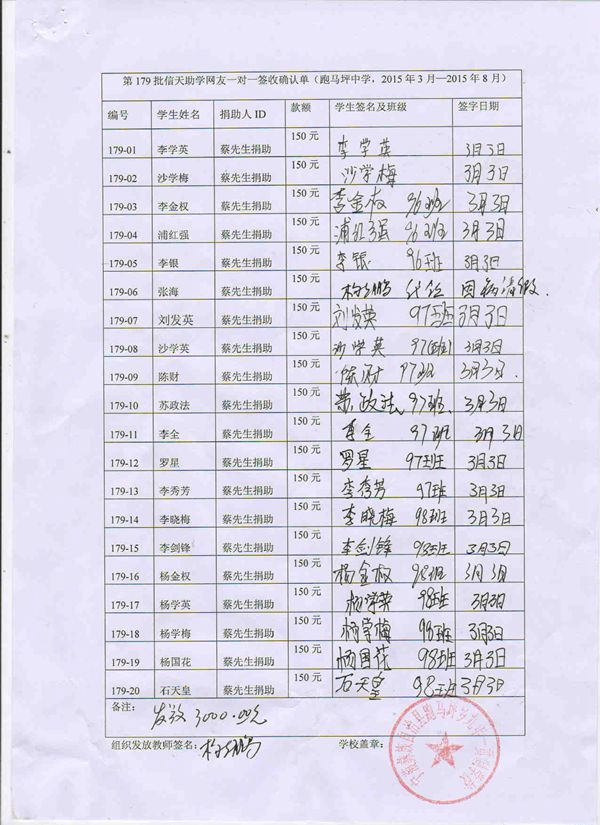 第 179 批信天助学网友一对一签收确认单（跑马坪中学，2015 年 3 月—2015 年 8 月）
编号 学生姓名 捐助人 ID 款额 学生签名及班级 签字日期
179-01 李学英 蔡先生捐助 150 元 李学英 3月3日
179-02 沙学梅 蔡先生捐助 150 元 沙学梅 3月3日
179-03 李金权 蔡先生捐助 150 元 李金权 96班 3月3日
179-04 浦红强 蔡先生捐助 150 元 浦红强 96班 3月3日
179-05 李银 蔡先生捐助 150 元 李银 96班 3月3日
179-06 张海 蔡先生捐助 150 元 代签 因病请假.
179-07 刘发英 蔡先生捐助 150 元 刘发英 97班 3月3日
179-08 沙学英 蔡先生捐助 150 元 沙学英 97(班) 3月3日
179-09 陈财 蔡先生捐助 150 元 陈财 97班 3月3日.
179-10 苏政法 蔡先生捐助 150 元 苏政法 97班. 3月3日
179-11 李全 蔡先生捐助 150 元 李全 97班 3月3日
179-12 罗星 蔡先生捐助 150 元 罗星 97班 3月3日
179-13 李秀芳 蔡先生捐助 150 元 李秀芳 97班 3月3日
179-14 李晓梅 蔡先生捐助 150 元 李晓梅 98班 3月3日
179-15 李剑锋 蔡先生捐助 150 元 李剑锋 98班 3月3日
179-16 杨金权 蔡先生捐助 150 元 杨金权 98班 3月3日
179-17 杨学英 蔡先生捐助 150 元 杨学英 98班 3月3日
179-18 杨学梅 蔡先生捐助 150 元 杨学梅 98班 3月3日
179-19 杨国花 蔡先生捐助 150 元 杨国花 98班 3月3日
179-20 石天皇 蔡先生捐助 150 元 石天皇 98班 3月3日
备注：
发放3000.00元
组织发放教师签名： 学校盖章：
宁蒗彝族自治县跑马坪乡九年一贯制学校